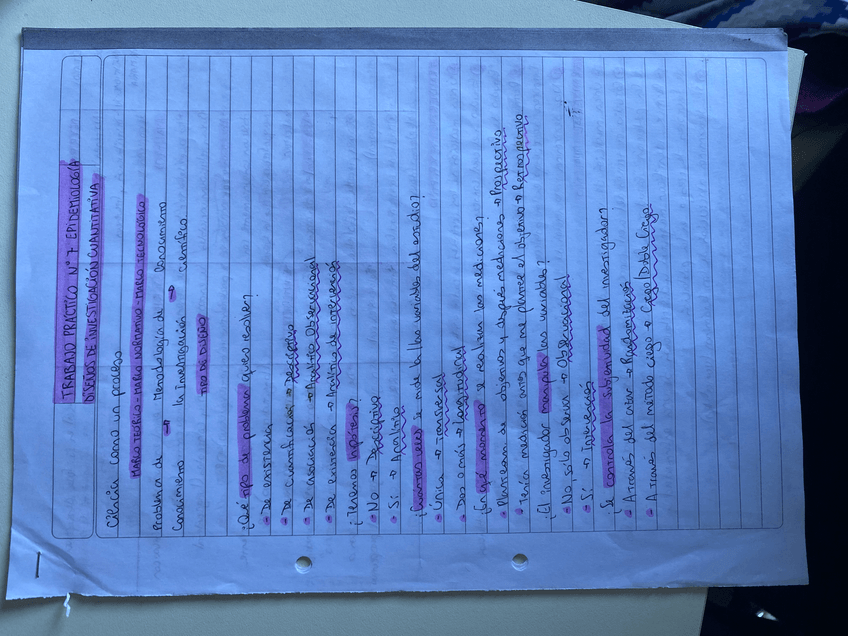 TRABAJO PRÁCTICO N°7 EPIDEMIOLOGÍA
DISEÑOS DE INVESTIGACIÓN CUANTITATIVA
Ciencia como un proceso
MARCO TEÓRICO - MARCO NORMATIVO - MARCO TECNOLÓGICO
Problema de → Metodología de → Conocimiento
Conocimiento la Investigación científico
TIPO DE DISEÑO
¿Qué tipo de problema quiero resolver?
- De existencia
- De cuantificación → Descriptivo
- De asociación → Analítico Observacional
- De existencia → Analítico de intervención
¿Tenemos hipótesis?
- No → Descriptivo
- Sí → Analítico
¿Cuántas veces se mide la/las variables del estudio?
- Única → Transversal
- Dos o más → Longitudinal
¿En qué momento se realizan las mediciones?
- Plantearon de objetivos y después mediciones → Prospectivo
- Tenía medición antes que me plantee el objetivo → Retrospectivo
¿El investigador manipula las variables?
- No, sólo observa → Observacional
- Sí → Intervención
¿Se controla la subjetividad del investigador?
- A través del azar → Randomizados
- A través del método ciego → Ciego/Doble Ciego